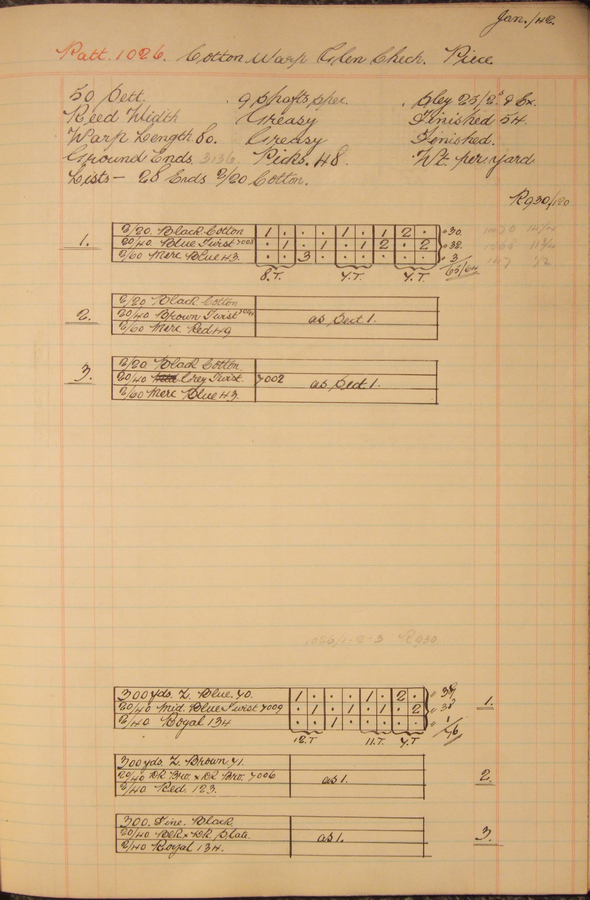 Jan./42.
Patt. 1026. Cotton Warp Glen Check. Piece
50 Sett. 9 Shafts Spec. Sley 25/2s 9 Ex.
Reed Width Greasy Finished 54.
Warp Length 80. Greasy Finished.
Ground Ends 3136. Picks. 48. Wt. per yard
Lists - 28 Ends 2/20 Cotton.
R930/120
1.
2/20. Black Cotton 1 . . . 1 . 1 2 . 30.
20/40. Blue Twist 7008 . 1 . 1 . 1 2 . 2 32.
2/60 Merc Blue 43. . . 3 . . . . . . 3
65/64
8.T. 4.T. 4.T.
2.
2/20 Black Cotton
20/40 Brown Twist
2/60 Merc Red 49
as Sect 1.
3.
2/20 Black Cotton.
20/40 Grey Twist. 7002
2/60 Merc Blue 43.
as Sect 1.
R930
300 yds. Z. Blue. 70. 1 . . . 1 . 2 .
20/40 Mid. Blue Twist 7009 . 1 . 1 . 1 . 2 38
2/40 Royal 134 . . 1 . . . . . 1
12.T 11.T. 4.T
1.
300 yds. Z. Brown 71.
20/40 DK Bro. x DK Bro. 7006
2/40 Red. 123.
as 1.
2.
300. Fine. Black
20/40 DK x DK Slate.
2/40 Royal 134.
as 1.
3.